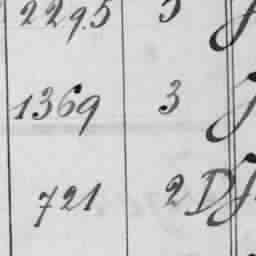 2295 3
1369 3
721 2 D